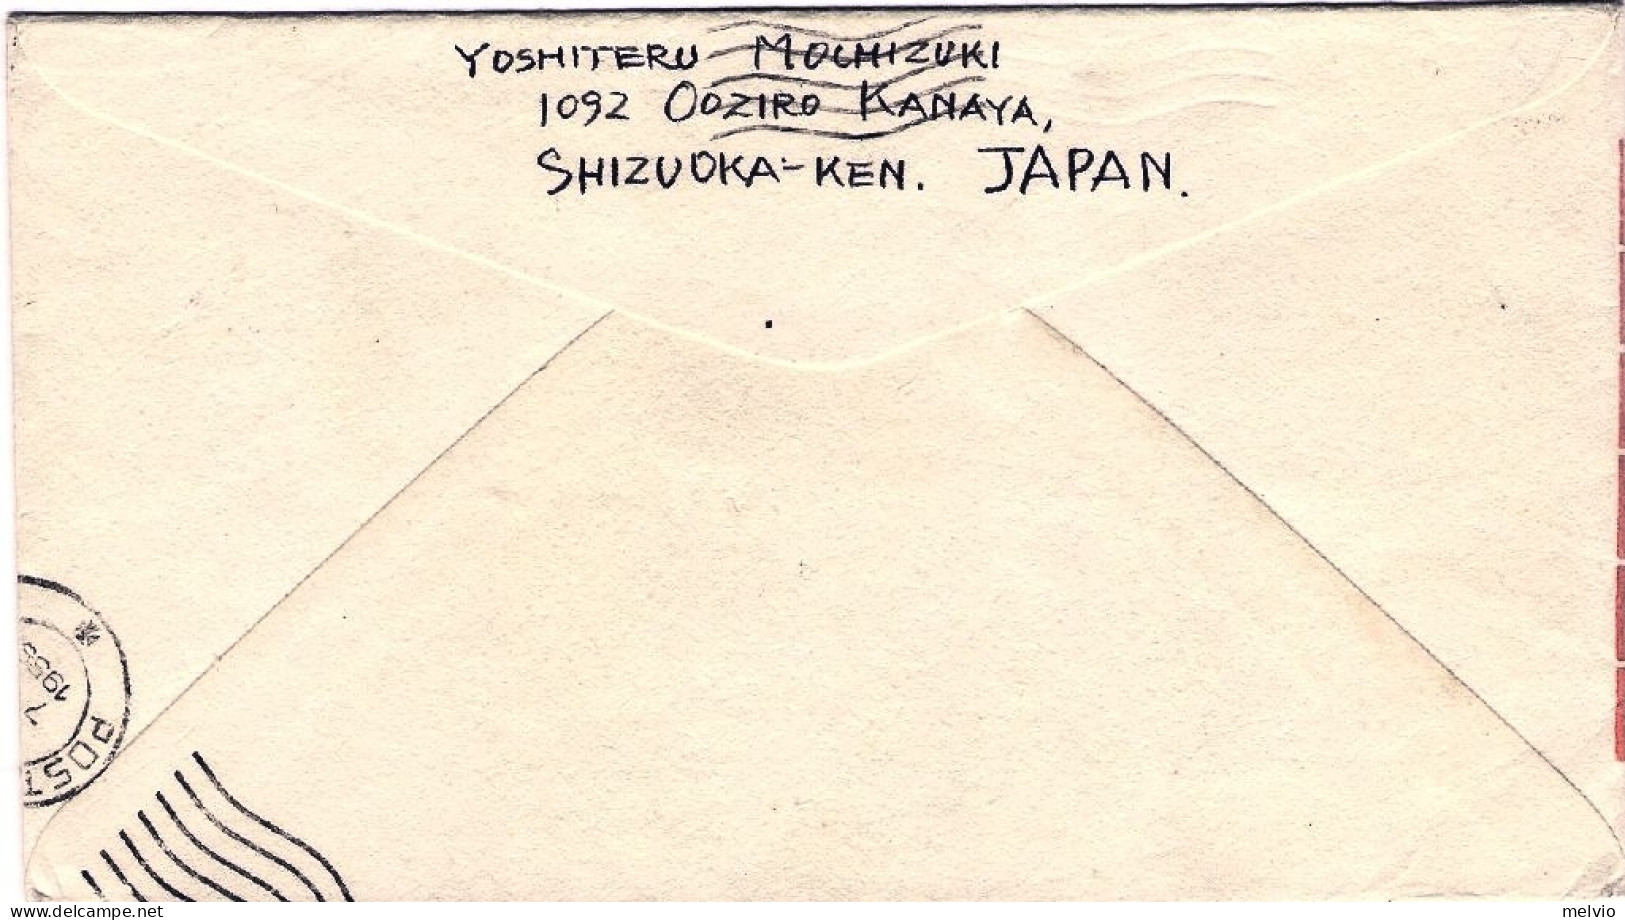 YOSHITERU MOCHIZUKI
1092 OOZIRO KANAYA,
SHIZUOKA-KEN. JAPAN.
7
POST
delcampe.net
melvio